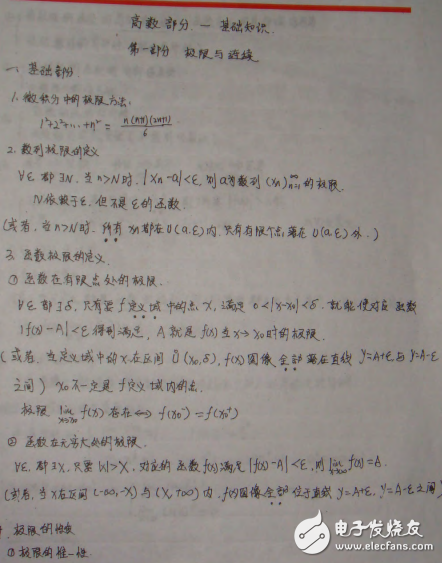 高数部分 — 基础知识.
第一部分 极限与连续
一、基础部分
1. 微积分中的极限方法:
1²+2²+…+n² = n(n+1)(2n+1)/6
2. 数列极限的定义
∀ε 都∃N. 当n>N时. |xn-a|<ε, 则a为数列(xn)∞n=1的极限.
N依赖于ε, 但不是ε的函数.
(或者, 当n>N时. 所有xn都在U(a.ε)内, 只有有限个点落在U(a.ε)外.)
3. 函数极限的定义.
① 函数在有限点处的极限.
∀ε 都∃δ, 只要f定义域中的点x, 满足 0<|x-x₀|<δ. 就能使对应函数
|f(x)-A|<ε得到满足, A就是f(x)当x→x₀时的极限.
(或者, 当定义域中的x在区间Ů(x₀,δ), f(x)图像全部落在直线 y=A+ε与y=A-ε
之间) x₀不一定是f定义域内的点.
极限 lim x→x₀ f(x) 存在⟺ f(x₀⁻)=f(x₀⁺)
② 函数在无穷大处的极限.
∀ε. 都∃X, 只要|x|>X, 对应的函数f(x)满足|f(x)-A|<ε, 则 lim x→∞ f(x)=A.
(或者, 当x在区间(-∞,-X)与(X,+∞)内, f(x)图像全部位于直线y=A+ε, y=A-ε之间)
极限的性质
①极限的唯一性.
电子发烧友
www.elecfans.com